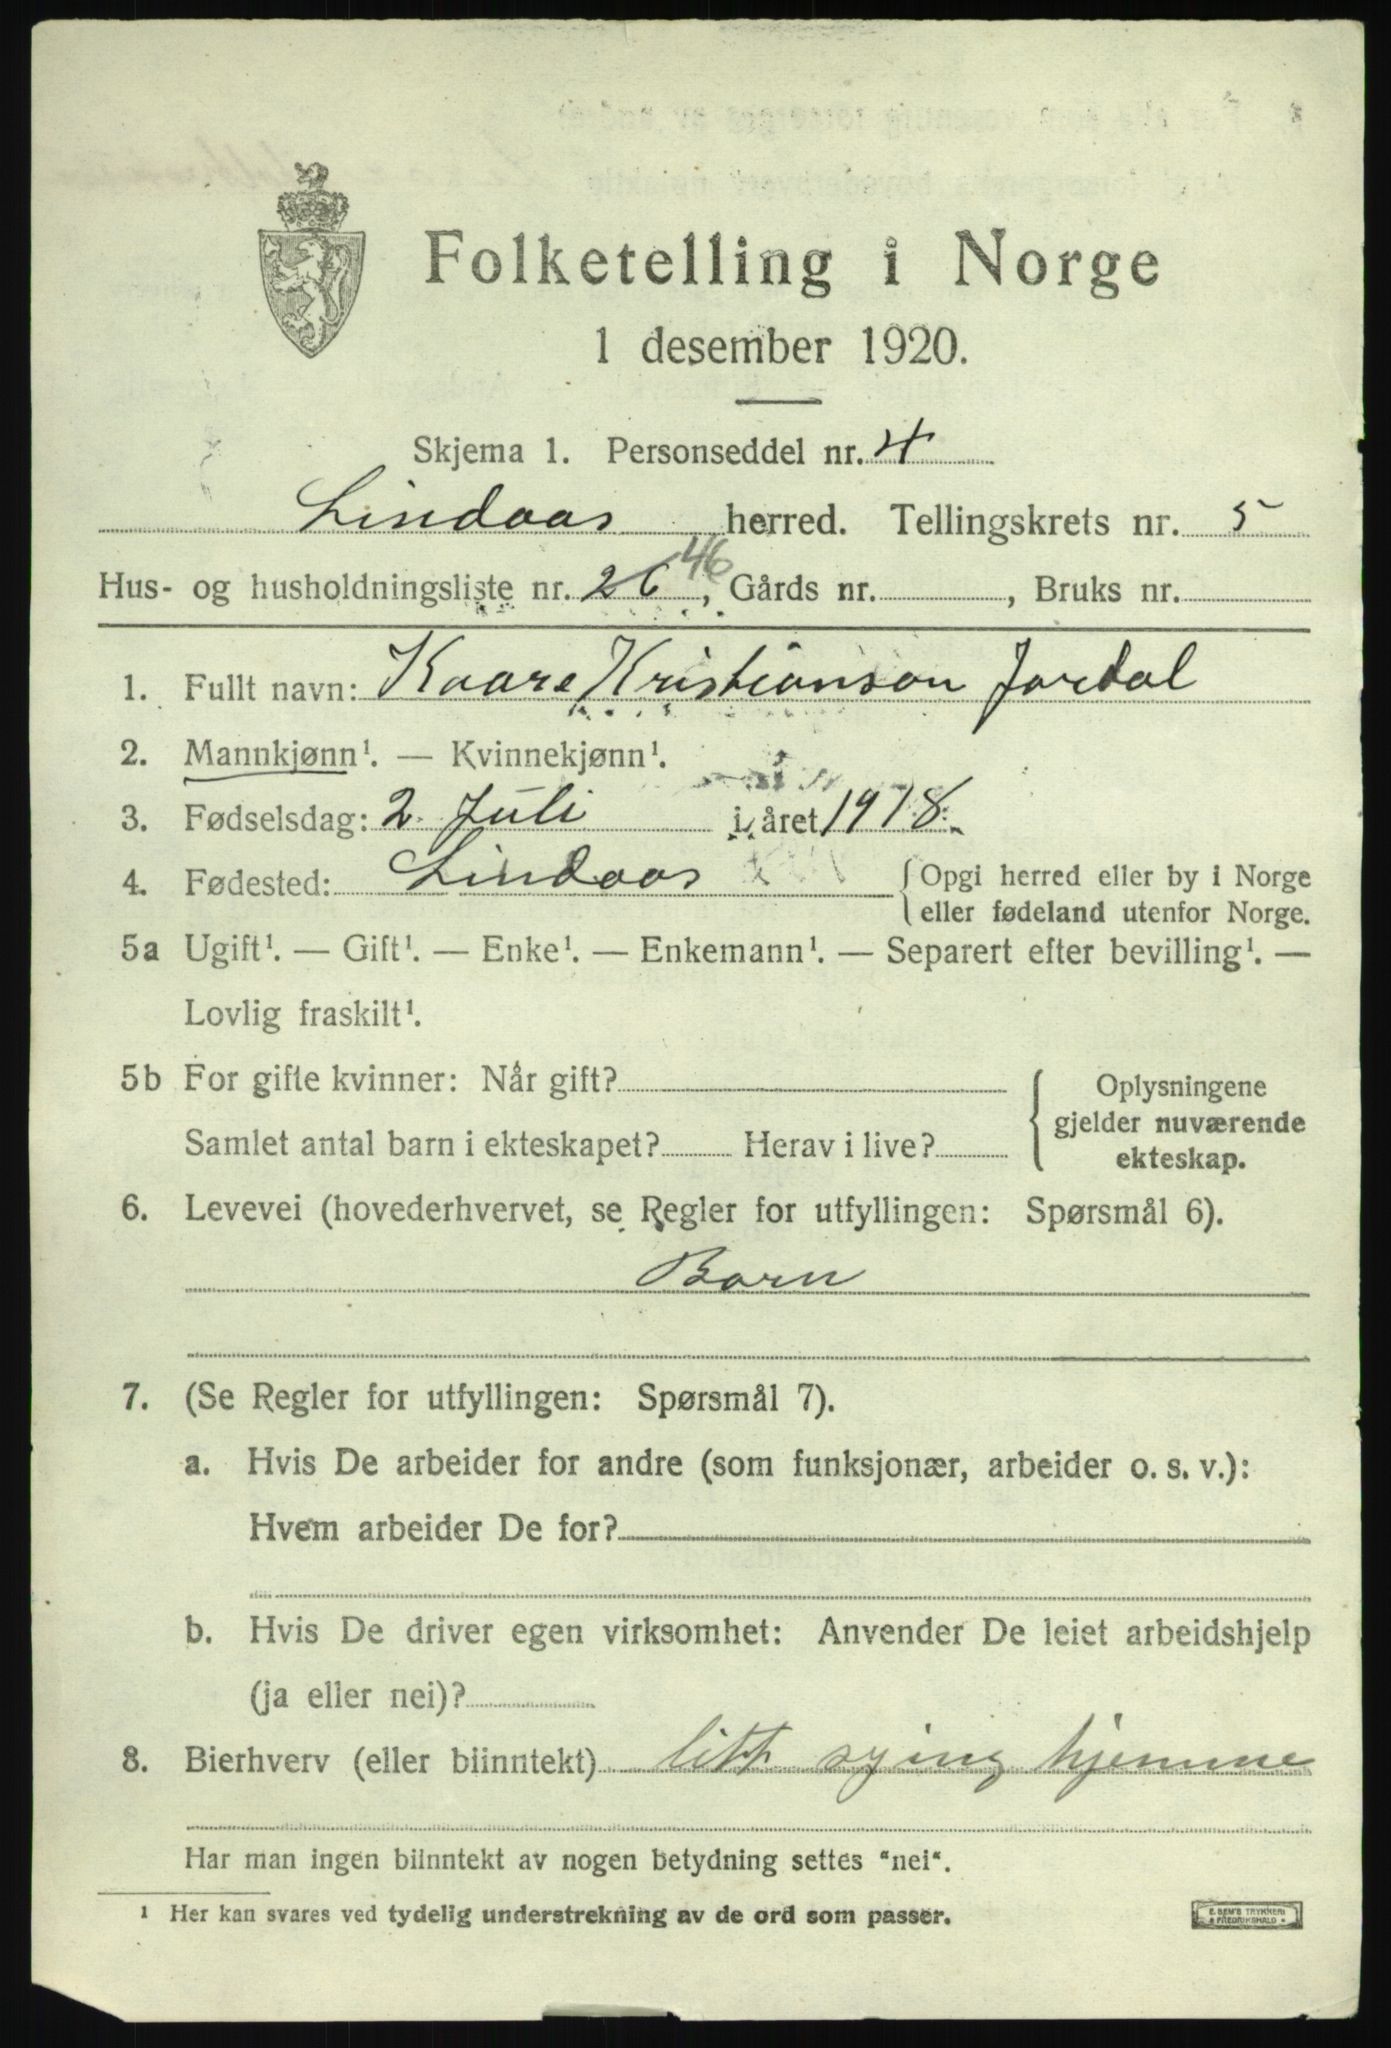 Folketelling i Norge
1 desember 1920.
Skjema 1. Personseddel nr. 4
Lindaas herred. Tellingskrets nr. 5
46
Hus- og husholdningsliste nr. 26, Gårds nr. , Bruks nr.
1. Fullt navn: Kaare Kristianson Jordal
2. Mannkjønn¹. — Kvinnekjønn¹.
3. Fødselsdag: 2 Juli i året 1918.
4. Fødested: Lindaas { Opgi herred eller by i Norge
eller fødeland utenfor Norge.
5a Ugift¹. — Gift¹. — Enke¹. — Enkemann¹. — Separert efter bevilling¹. —
Lovlig fraskilt¹.
5b For gifte kvinner: Når gift? { Oplysningene
gjelder nuværende
Samlet antal barn i ekteskapet? Herav i live? ekteskap.
6. Levevei (hovederhvervet, se Regler for utfyllingen: Spørsmål 6).
Barn
7. (Se Regler for utfyllingen: Spørsmål 7).
a. Hvis De arbeider for andre (som funksjonær, arbeider o. s. v.):
Hvem arbeider De for?
b. Hvis De driver egen virksomhet: Anvender De leiet arbeidshjelp
(ja eller nei)?
8. Bierhverv (eller biinntekt) litt sying hjemme
Har man ingen biinntekt av nogen betydning settes "nei".
¹ Her kan svares ved tydelig understrekning av de ord som passer.
E. SEM'S TRYKKERI
FREDRIKSHALD